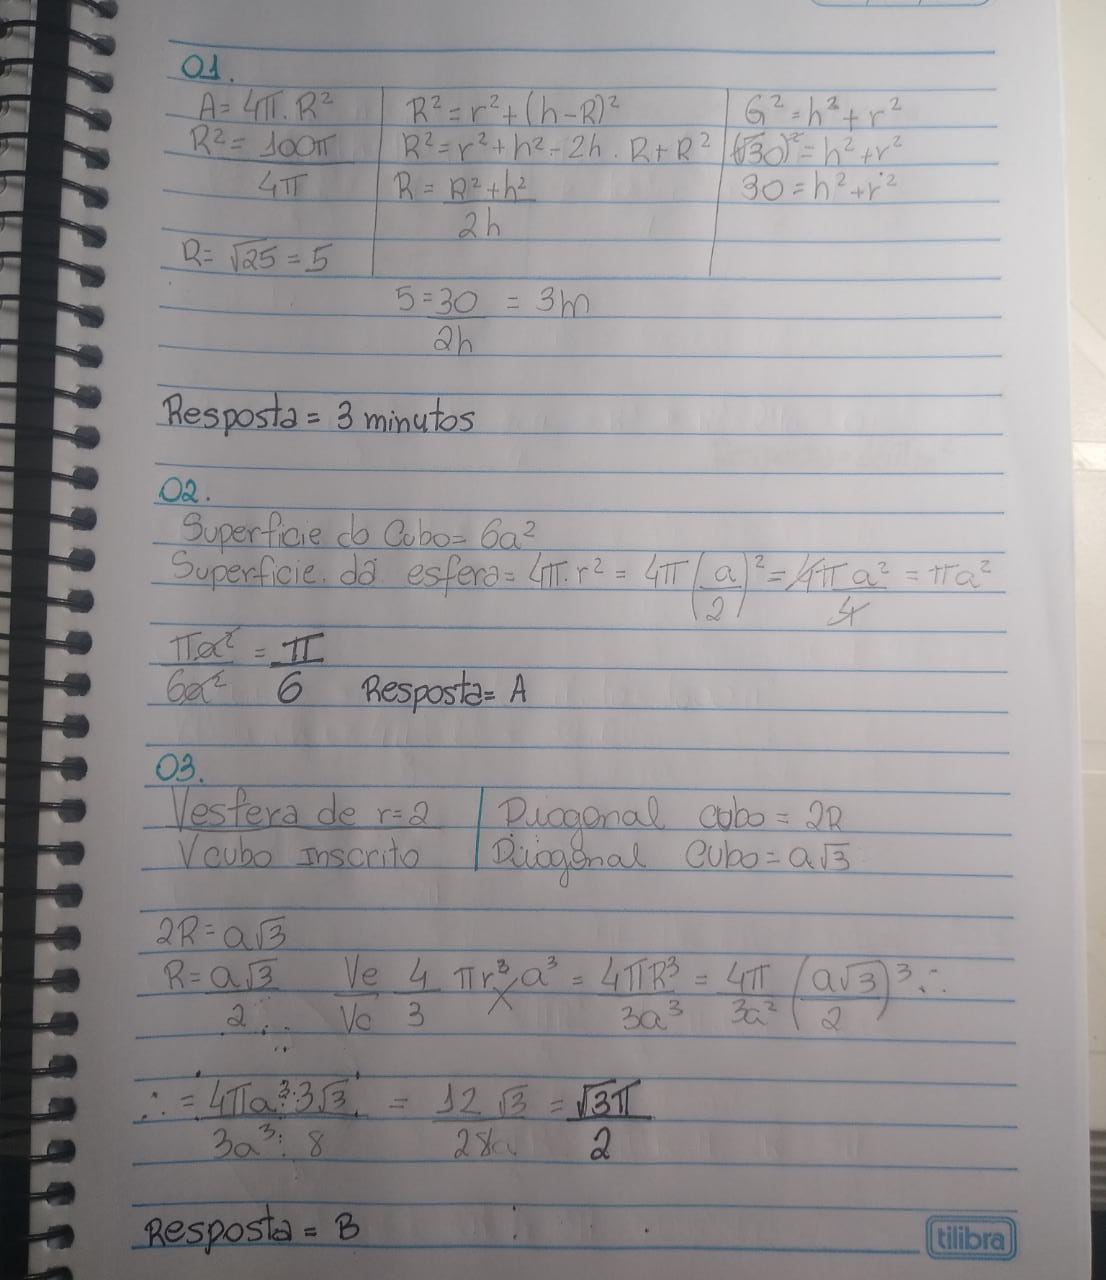 01.
A = 4π . R²
R² = 100π
4π
R = √25 = 5
R² = r² + (h - R)²
R² = r² + h² - 2h . R + R²
R = R² + h²
2h
G² = h² + r²
(√30)² = h² + r²
30 = h² + r²
5 = 30 = 3m
2h
Resposta = 3 minutos
02.
Superficie do Cubo = 6a²
Superficie. da esfera = 4π.r² = 4π (a/2)² = 4πa²/4 = πa²
πa² = π
6a² 6 Resposta = A
03.
Vesfera de r = 2 | Diagonal cubo = 2R
V cubo Inscrito | Diagonal Cubo = a√3
2R = a√3
R = a√3/2 ∴ Ve/Vc 4/3 πr³ × a³ = 4πR³/3a³ = 4π/3a² (a√3/2)³ ∴
∴ = 4πa³ . 3√3 = 12√3 = √3π
3a³ . 8 2
Resposta = B
tilibra